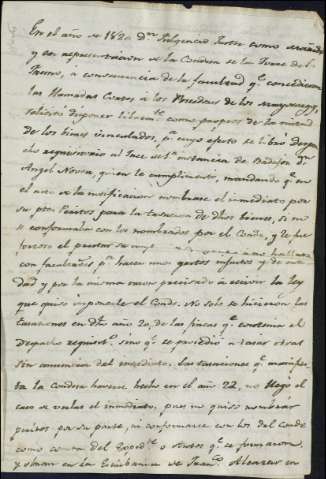 En el año de 1820 Dⁿ Fulgencio Fuster como marido
y en representacion de la Condesa de la Torre del
Fresno, a consecuencia de la facultad qᵉ concedieron
las llamadas Cortes á los Poseedores de los mayorazgos,
solicitó disponer libremᵗᵉ como propios de la mitad
de los bienes vinculados, pᵃ cuyo efecto se libró despa
cho requisitorio al Juez de 1ᵃ instancia de Badajoz Dⁿ
Angel Novoa, quien le cumplimentó, mandando qᵉ en
el acto de la notificacion nombrase el inmediato por
su pᵗᵉ Peritos para la tasacion de dhos bienes, si no
se conformaba con los nombrados por el Conde, y le fue
forzoso el prestar su
con facultades pᵃ hacer unos gastos injustos y de
dad y por la misma razon precisado á recivir la ley
que quiso imponerle el Conde. No solo se hicieron las
tasaciones en dho año 20, de las fincas qᵉ contenia el
Despacho requisitᵒ sino qᵉ se procedió a tasar otras
sin anuencia del inmediato. Las tasaciones qᵉ manifies
ta la Condesa haverse hecho en el año 22, no llegó el
caso de verlas el inmediato, pues no quiso nombrar
peritos por su parte, ni conformarse con los del Conde
como consta del Expedᵗᵉ o Autos qᵉ se formaron
y obran en la Escribania de Juan Alvarez en